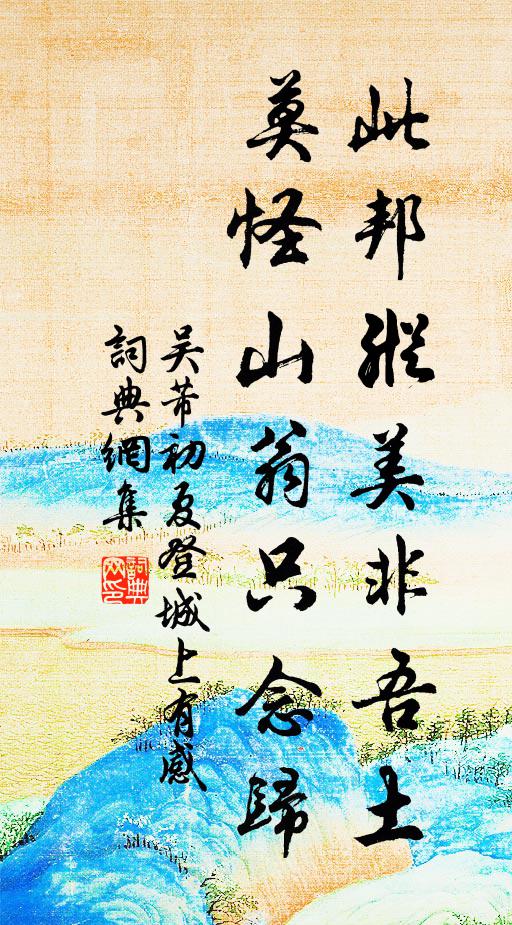 此邦縱美非吾土
莫怪山翁只念歸
吴芾初夏登城上有感
詞典網集
詞典網印